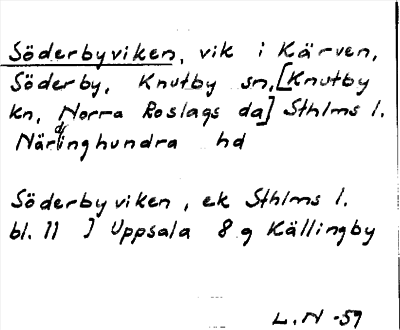 Söderbyviken, vik i Kärven,
Söderby, Knutby sn, [Knutby
kn, Norra Roslags da] Sthlms l.
Närdinghundra hd
Söderbyviken, ek Sthlms l.
bl. 11 J Uppsala 8 g Källingby
L.N -59